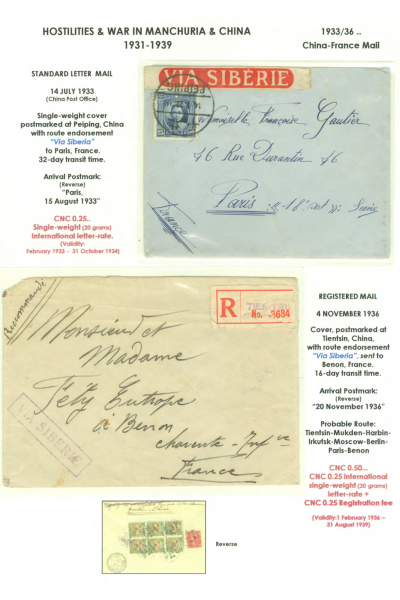 HOSTILITIES & WAR IN MANCHURIA & CHINA
1931-1939
1933/36 ..
China-France Mail
STANDARD LETTER MAIL
14 JULY 1933
(China Post Office)
Single-weight cover
postmarked at Peiping, China
with route endorsement
"Via Siberia"
to Paris, France.
32-day transit time.
Arrival Postmark:
(Reverse)
"Paris,
15 August 1933"
CNC 0.25..
Single-weight (20 grams)
International letter-rate.
(Validity:
February 1933 - 31 October 1934)
VIA SIBÉRIE
PEIPING
Françoise Gautier
16 Rue Durantin 16
Paris
France
Recommandé
R
No. 3684
Monsieur et
Madame
Féty Eutrope
à Benon
Charente-Infre
France
VIA SIBERIE
REGISTERED MAIL
4 NOVEMBER 1936
Cover, postmarked at
Tientsin, China,
with route endorsement
"Via Siberia", sent to
Benon, France.
16-day transit time.
Arrival Postmark:
(Reverse)
"20 November 1936"
Probable Route:
Tientsin-Mukden-Harbin-
Irkutsk-Moscow-Berlin-
Paris-Benon
CNC 0.50...
CNC 0.25 International
single-weight (20 grams)
letter-rate +
CNC 0.25 Registration fee
(Validity:1 February 1936 –
31 August 1939)
Reverse